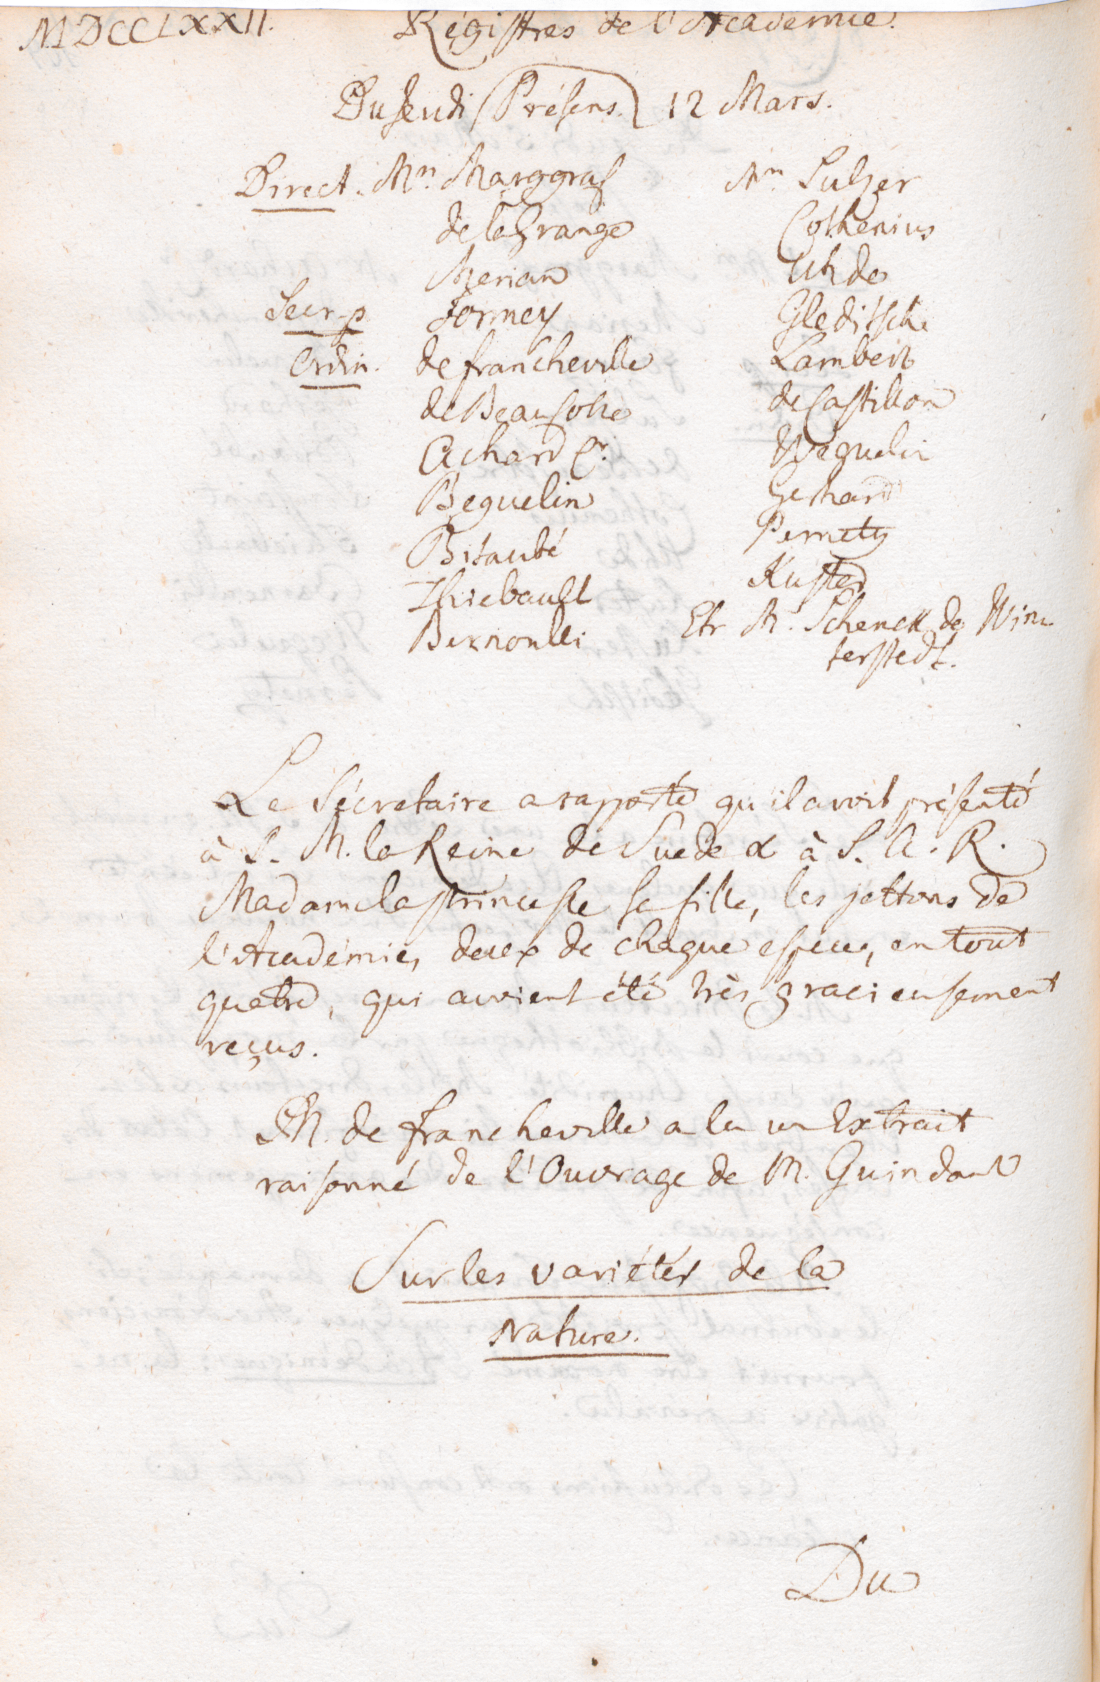 MDCCLXXII. Régistres de l'Academie.
Du Jeudi Présens. 12 Mars.
Direct. Mrs. Marggraf
de la Grange
Merian
Secr. p. Formey
Ordin. de Francheville
de Beausobre
Achard
Beguelin
Bitaubé
Thiebault
Bernoulli
Mrs. Sulzer
Cothenius
Uhde
Gleditsch
Lambert
de Castillon
Weguelin
Gerhard
Pernety
Kuster
Etr. M. Schenck de Win
terstedt.
Le Sécretaire a rapporté qu'il avoit présenté
à S. M. la Reine de Suede & à S. A. R.
Madame la Princesse sa fille, les jettons de
l'Académie, deux de chaque espece, en tout
quatre, qui avoient été très gracieusement
reçus.
M. de Francheville a lu un Extrait
raisonné de l'Ouvrage de M. Guindant
Sur les variétés de la
Nature.
Du